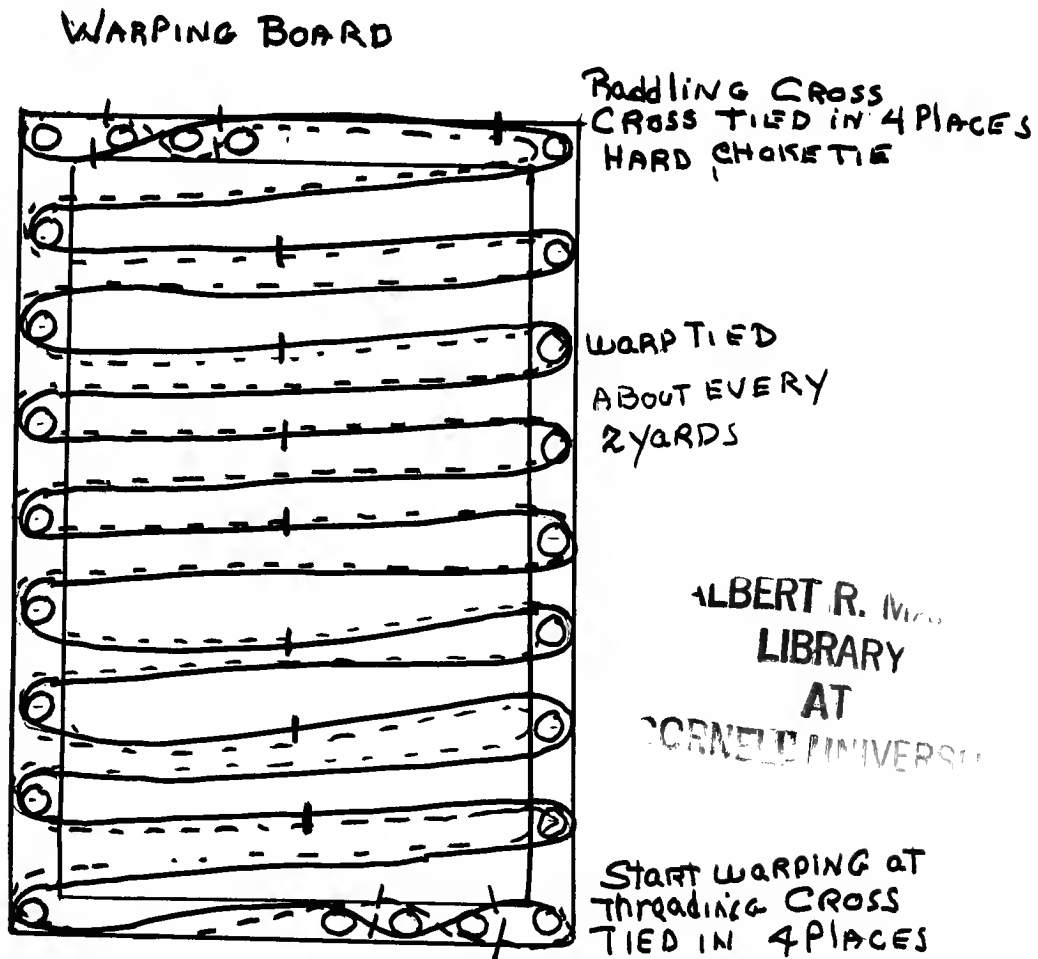 WARPING BOARD
RaddlING CROSS
CROSS TIED IN 4 PlACES
HARD CHOKE TIE
WARP TIED
ABOUT EVERY
2 YARDS
ALBERT R.
LIBRARY
AT
CORNELL UNIVERSI
Start WARPING at
Threading CROSS
TIED IN 4 PlACES